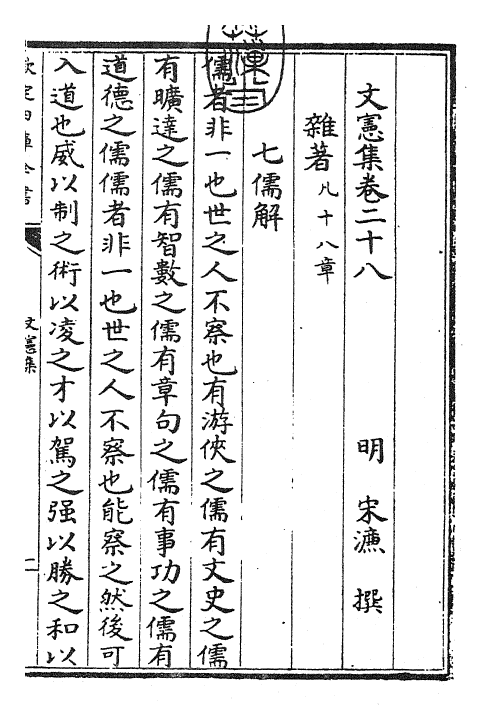 文憲集卷二十八
明　宋濂　撰
雜著凡十八章
七儒解
儒者非一也世之人不察也有游俠之儒有文史之儒
有曠達之儒有智數之儒有章句之儒有事功之儒有
道德之儒儒者非一也世之人不察也能察之然後可
入道也威以制之術以凌之才以駕之强以勝之和以
欽定四庫全書
文憲集